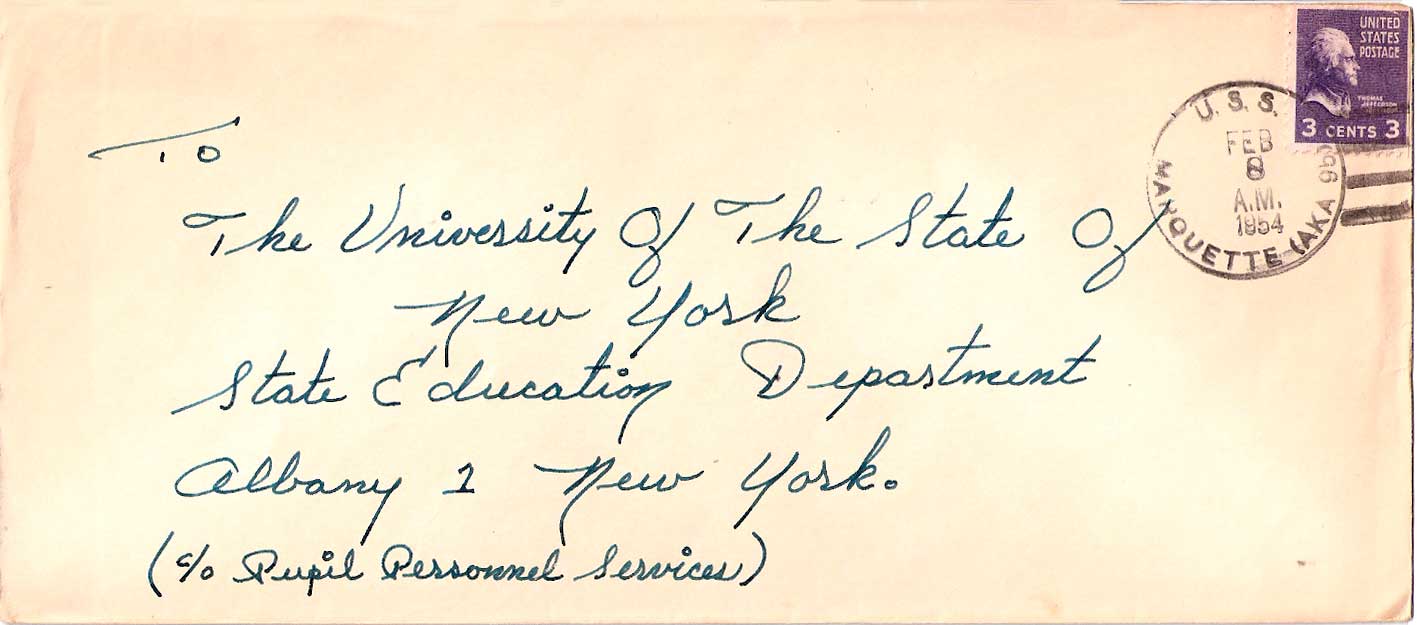 UNITED
STATES
POSTAGE
THOMAS
JEFFERSON
3 CENTS 3
U.S.S.
FEB
8
A.M.
1954
MARQUETTE (AKA 96
To
The University Of The State Of
New York
State Education Department
Albany 1 New York.
(c/o Pupil Personnel Services)